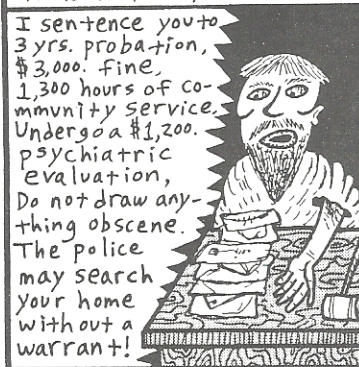 I sentence you to
3 yrs. probation,
$3,000. fine,
1,300 hours of co-
mmunity service.
Undergo a $1,200.
psychiatric
evaluation,
Do not draw any-
thing obscene.
The police
may search
your home
without a
warrant!